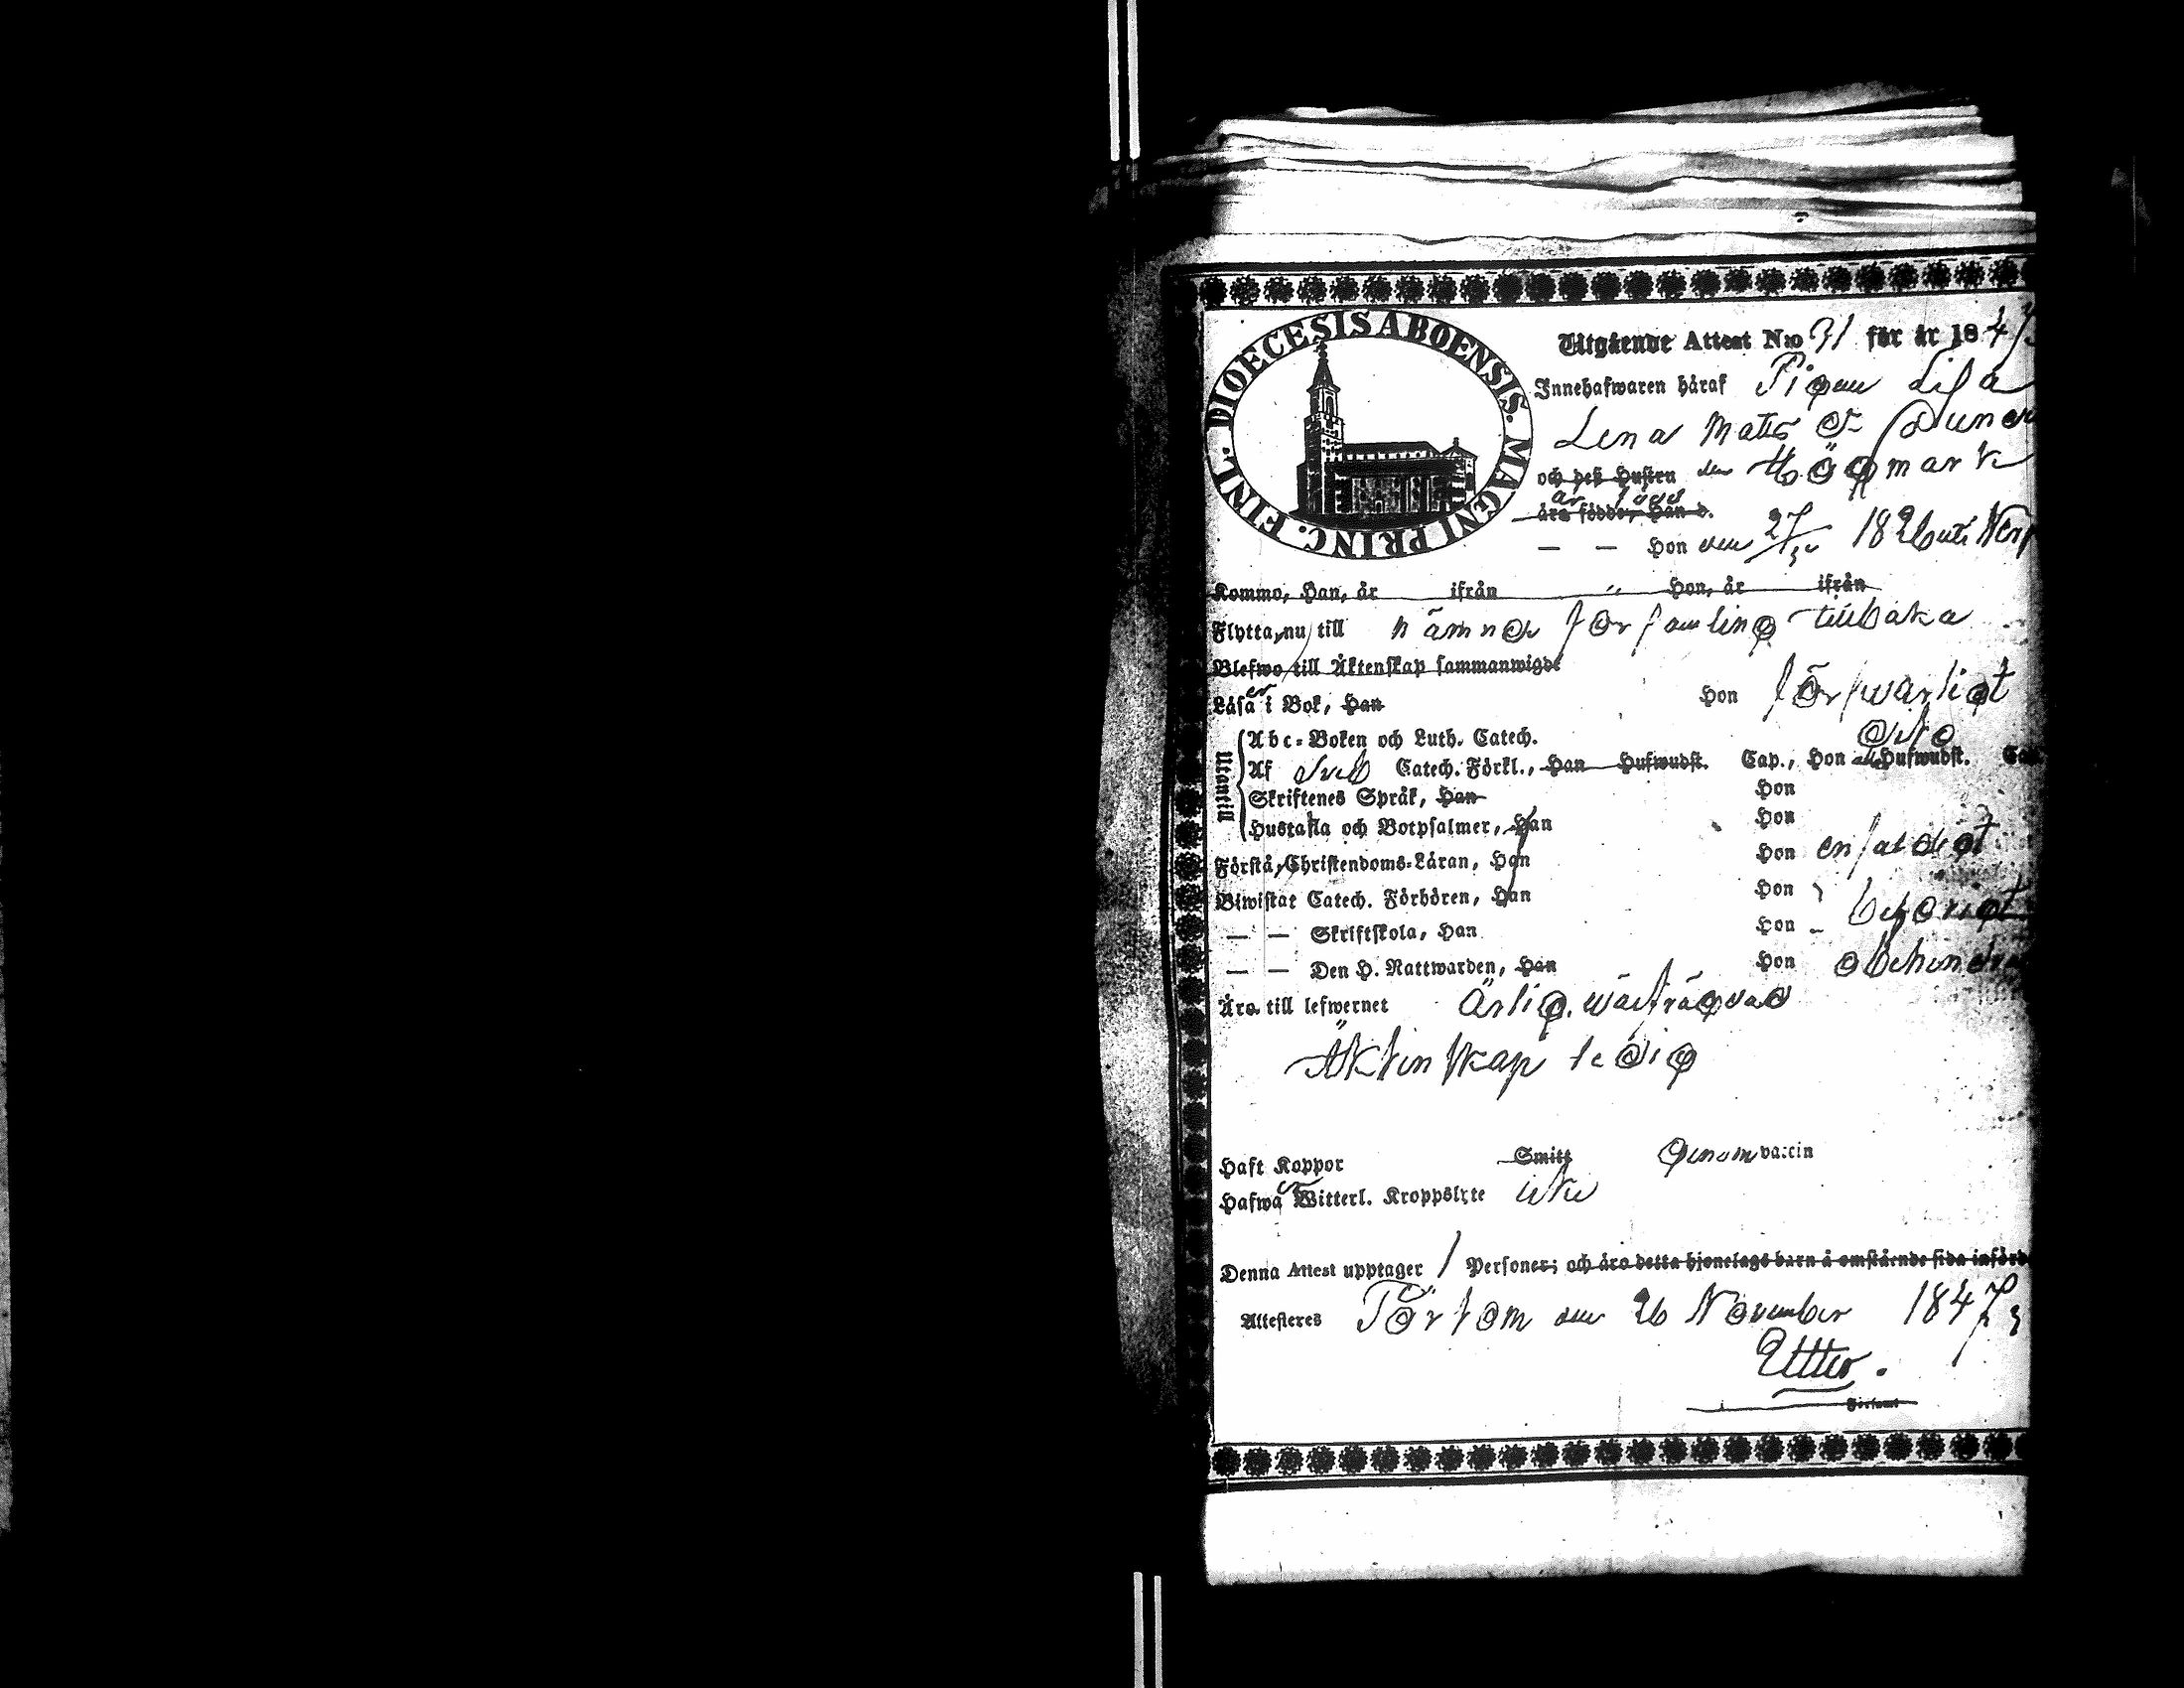 DIOECESIS ABOENSIS. MAGNI PRINC. FINL.
Utgående Attest N:o 31 för år 1847
Innehafwaren häraf Pigan Lisa
Lena Mats dr
och deß Hustru Höggmark
äro födde, Han d.
är född
— — Hon den 27/3 1826 uti
Kommo, Han, år ifrån " Hon, år ifrån
Flytta, nu till nämnde församling tillbaka
Blefwo till Äktenskap sammanwigde
Läsa er i Bok, Han Hon förswarligt
Utantill
Abc-Boken och Luth. Catech. dito
Af Sveb Catech. Förkl., Han Hufwudst. Cap., Hon alla Hufwudst. Ca
Skriftenes Språk, Han Hon
Hustafla och Botpsalmer, Han Hon
Förstå, Christendoms-Läran, Han Hon enfaldigt
Biwistat Catech. Förhören, Han Hon behörigt
— — Skriftskola, Han Hon
— — Den H. Nattwarden, Han Hon obehindra
Äro till lefwernet Ärlig, wälfrägdad
Äktenskap ledig
Haft Koppor Smitt Genom vaccin
Hafwa er Witterl. Kroppslyte icke
Denna Attest upptager 1 Personer; och äro detta hjonelags barn å omstående sida införd
Attesteres Pörtom den 26 November 1847
Förfamt